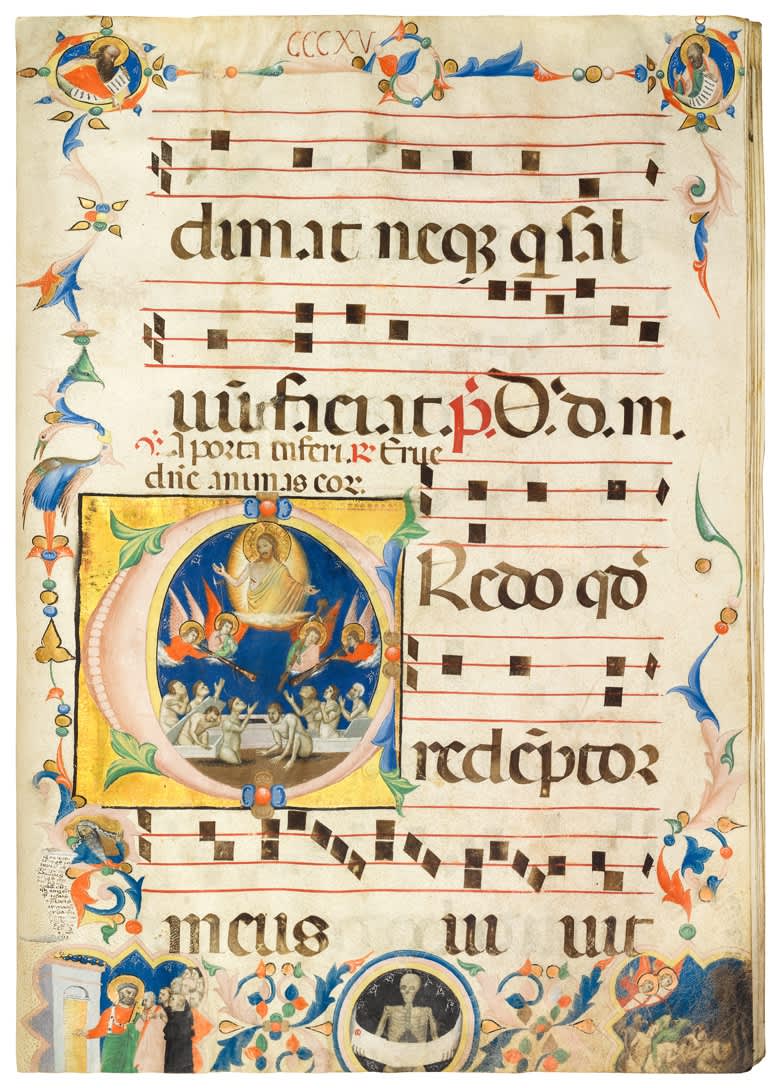 CCCXV
dimat neqꝫ q̄ sal
uū faciat. p̄. D̓. d. m.
℣. A porta inferi. ℟. Erue
dn̄e animas eoꝝ.
Redo qđ
redēptor
meus ui uit